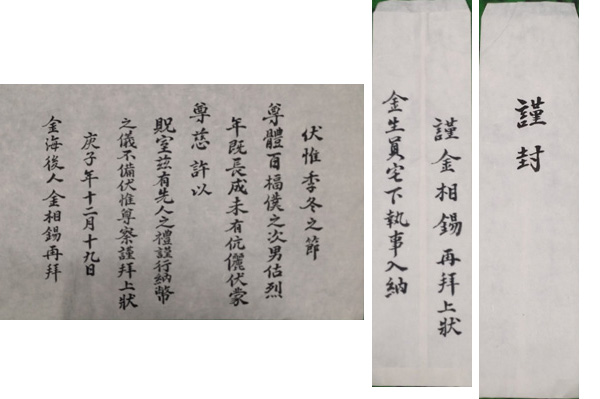 伏惟季冬之節
尊體百福僕之次男佑烈
年旣長成未有伉儷伏蒙
尊慈許以
貺室玆有先人之禮謹行納幣
之儀不備伏惟尊察謹拜上狀
庚子年十二月十九日
金海後人金相錫再拜
謹金相錫再拜上狀
金生員宅下執事入納
謹封